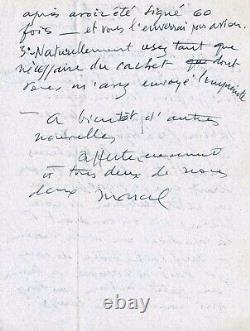 après avoir été signé 60
fois — et vous l'enverrai par avion
3º Naturellement usez tant que
nécessaire du cachet dont
vous m'avez envoyé l'empreinte
— A bientôt d'autres
nouvelles
affectueusement
à tous deux de nous
deux Marcel